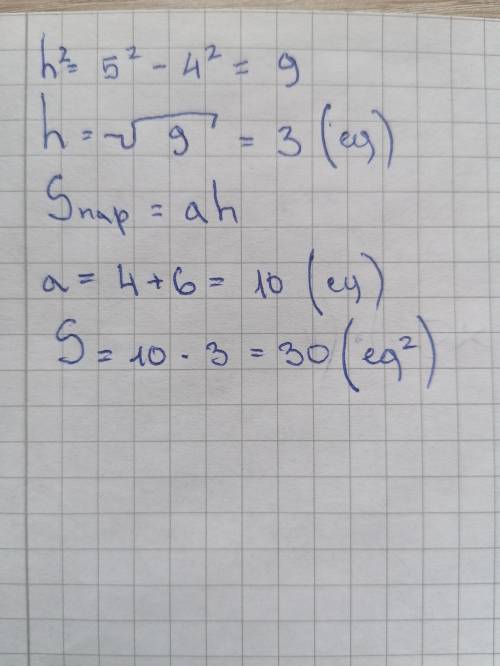 h² = 5² - 4² = 9
h = √9 = 3 (ед)
Sпар = ah
a = 4 + 6 = 10 (ед)
S = 10 · 3 = 30 (ед²)